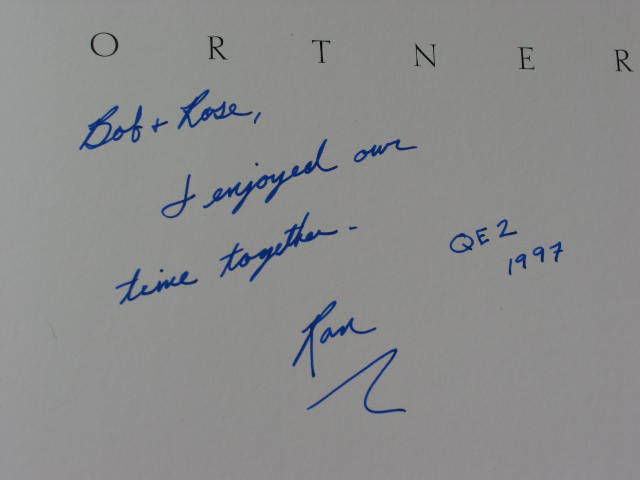 O R T N E R
Bob + Rose,
I enjoyed our
time together -
QE2
1997
Ran